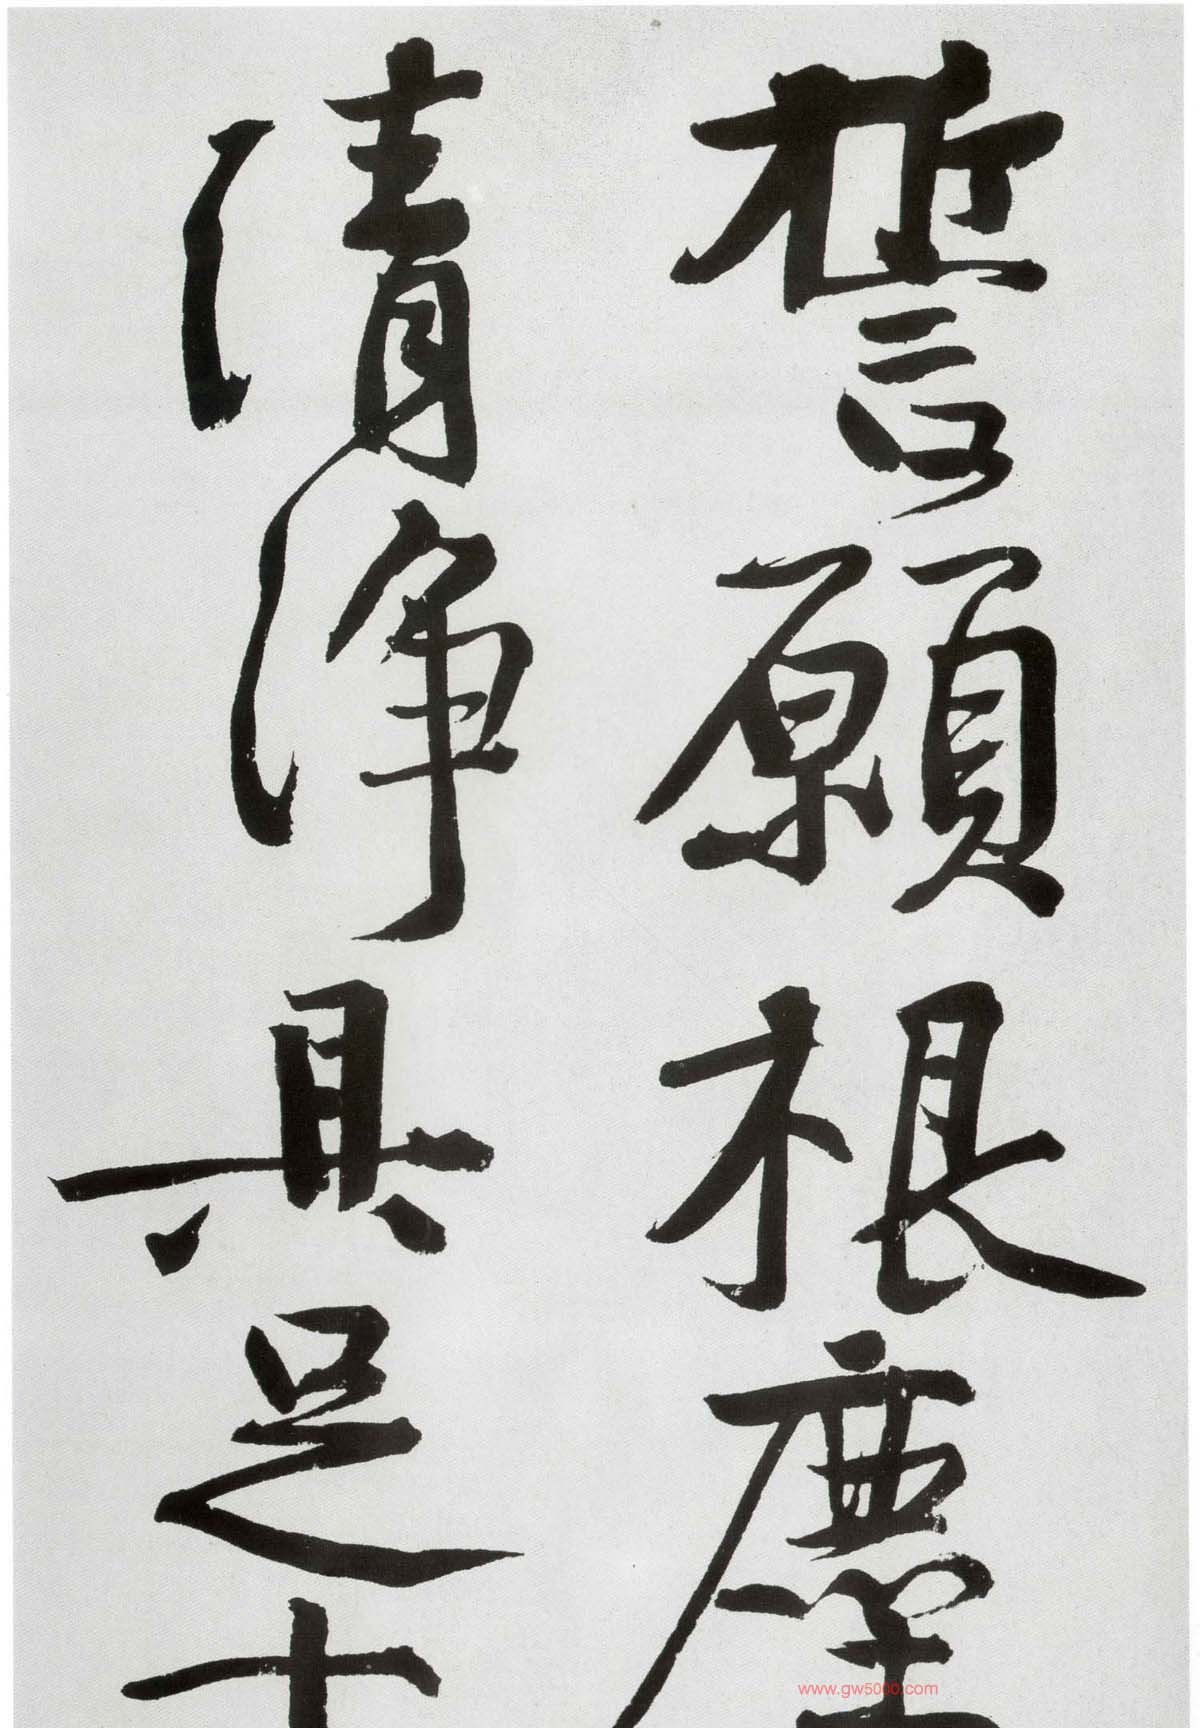 誓願根塵
清浄具足十
www.gw5000.com